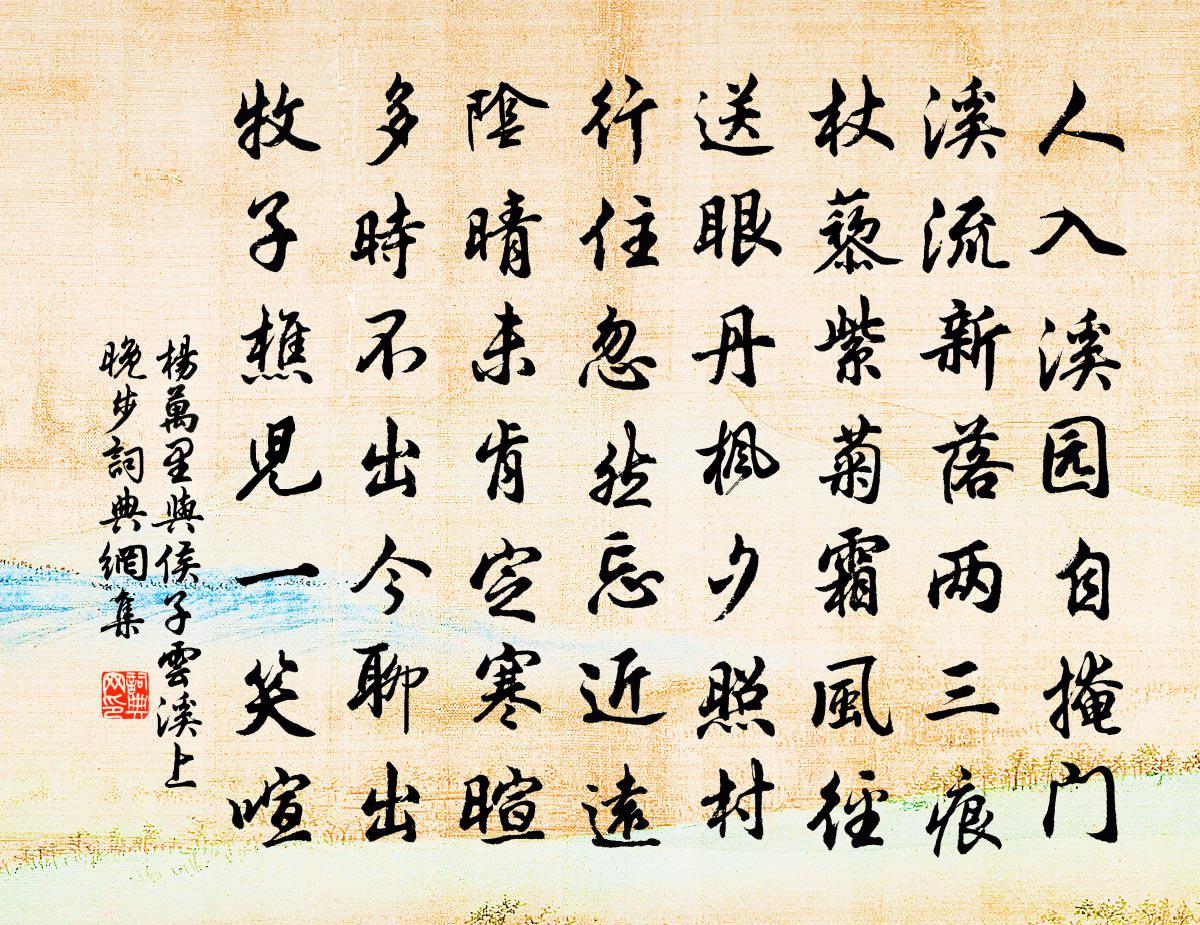 人入溪园自掩门
溪流新落两三痕
杖藜紫菊霜風径
送眼丹楓夕照村
行住忽然忘近遠
陰晴未肯定寒暄
多時不出今聊出
牧子樵児一笑喧
楊萬里與侯子雲溪上
晚步詞典網集
詞典
网印